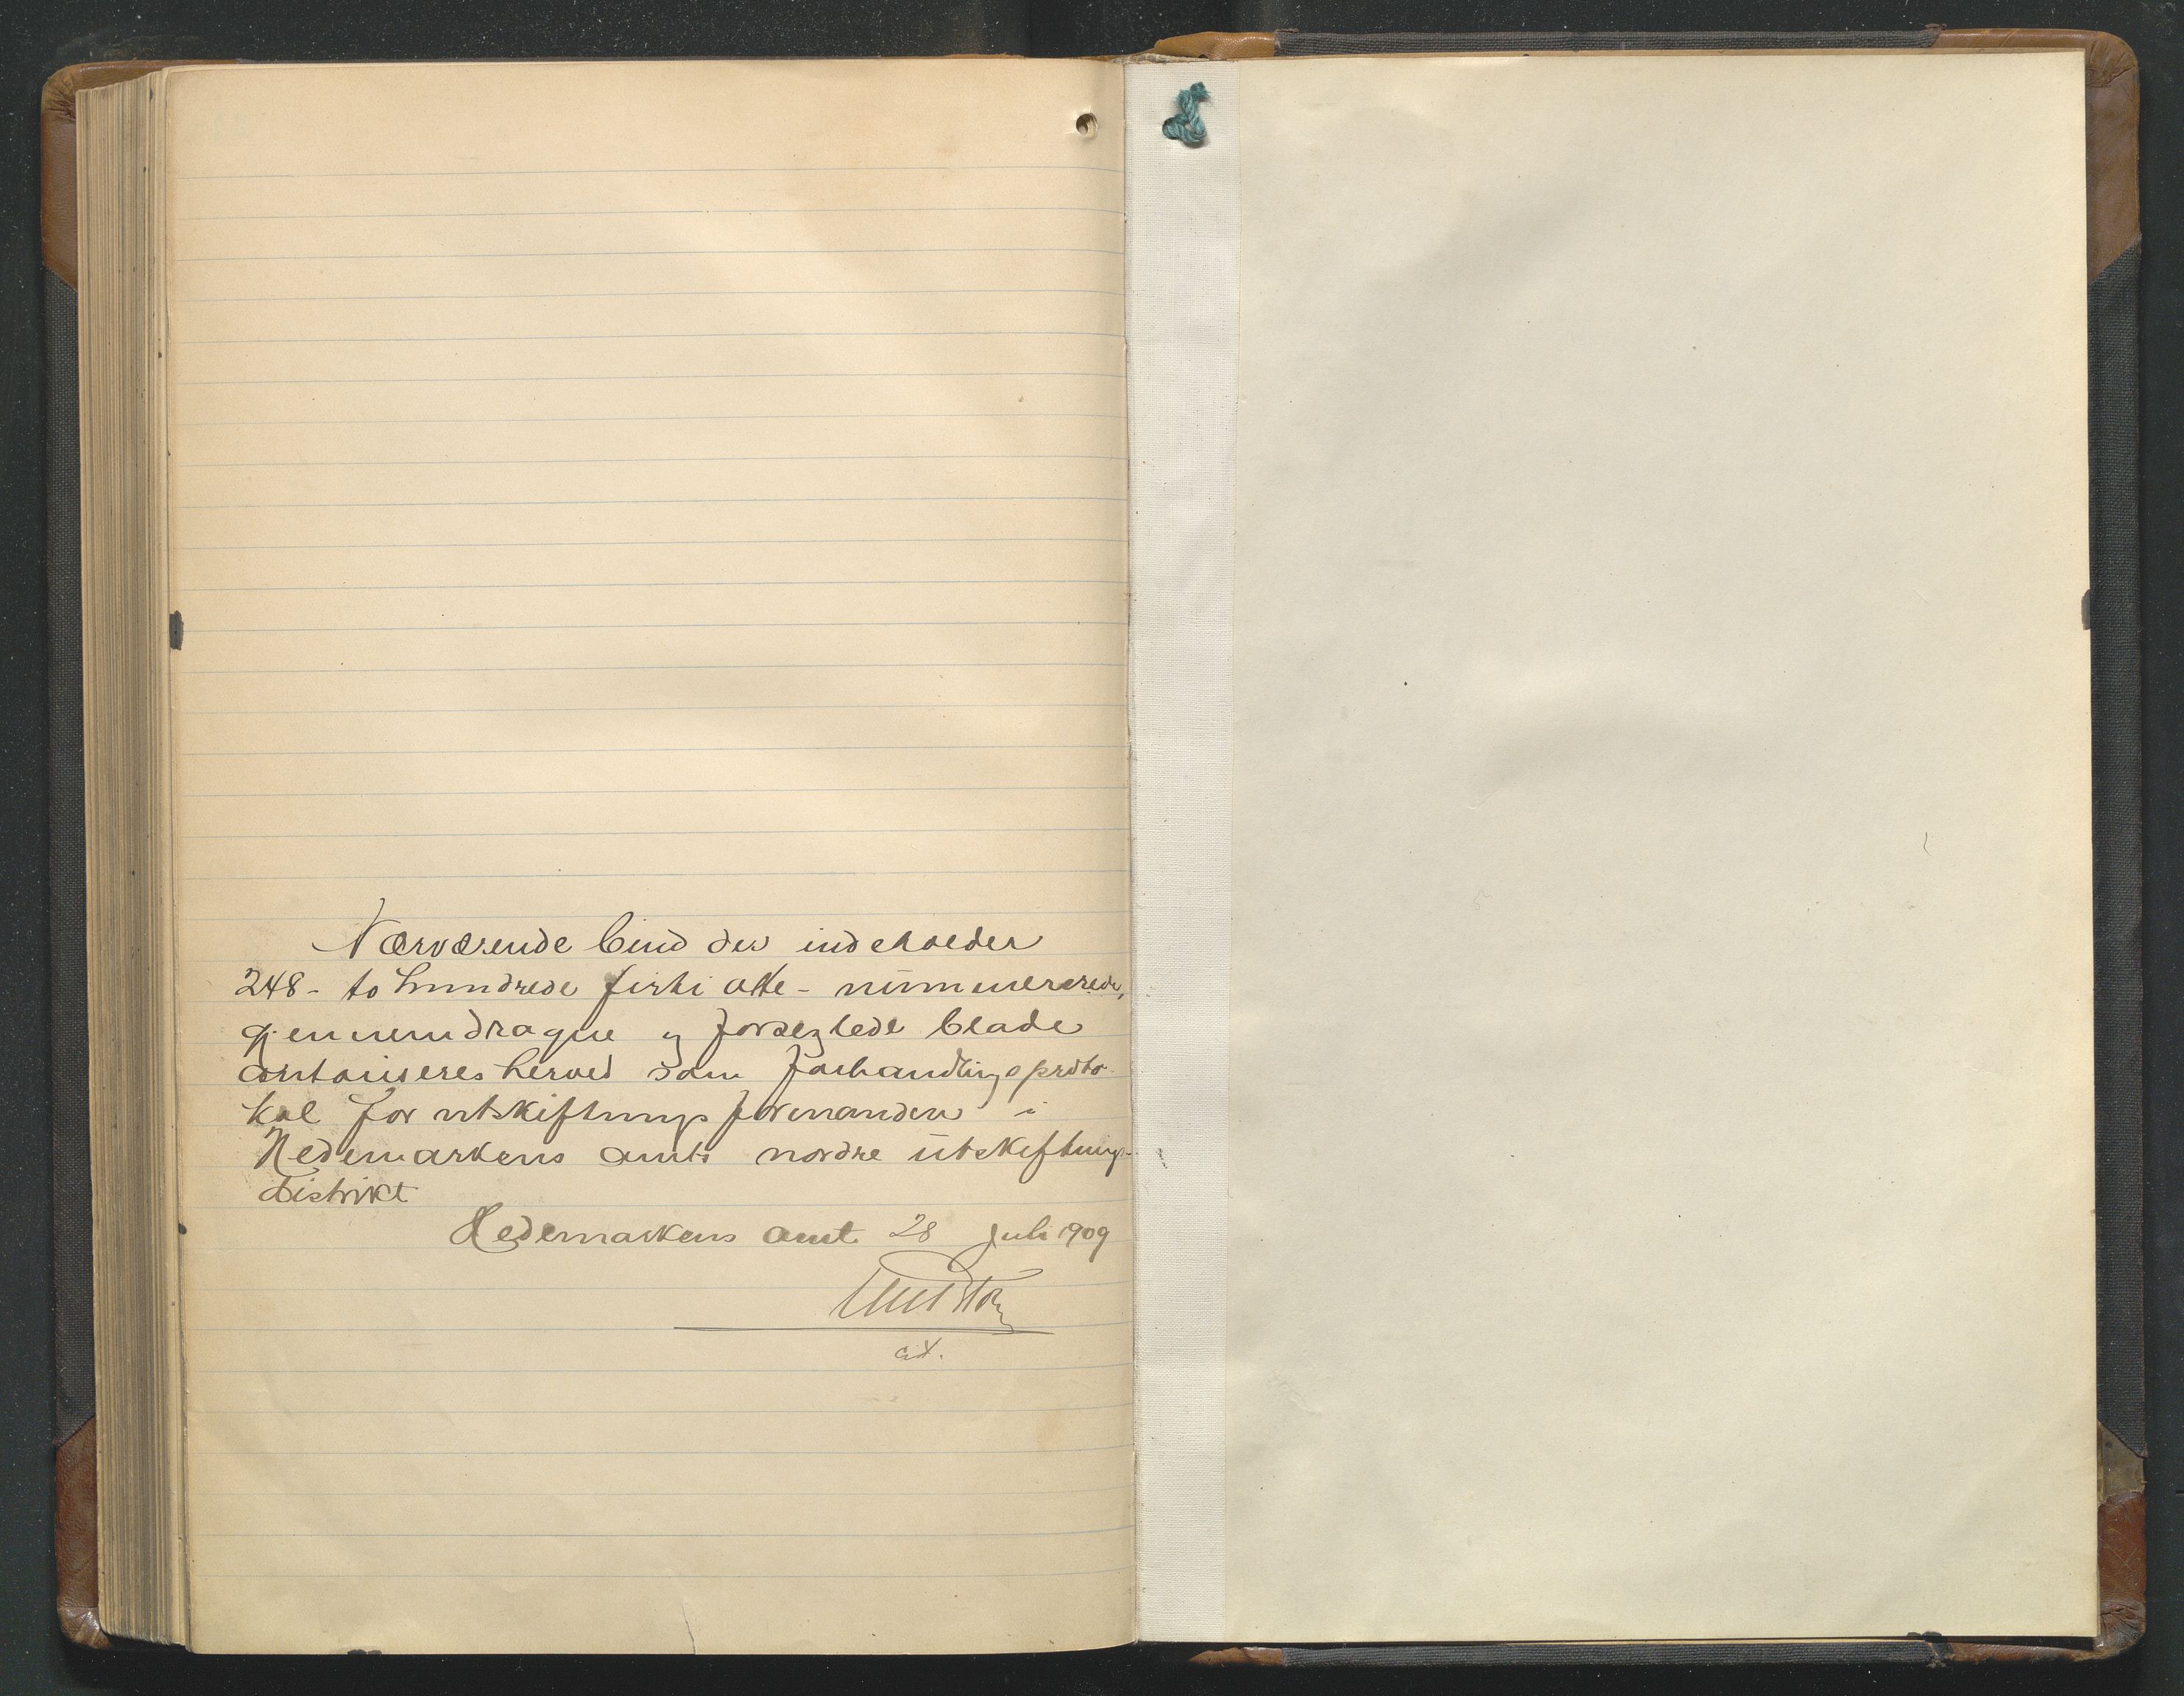 Nærværende bind der indeholder
248 - to hundrede firti otte - nummererede,
gjennemdragne og forseglede blade
autoriseres herved som forhandlingsproto-
kol for utskiftningsformanden i
Hedemarkens amts nordre utskiftnings-
distrikt
Hedemarkens amt 28 juli 1909